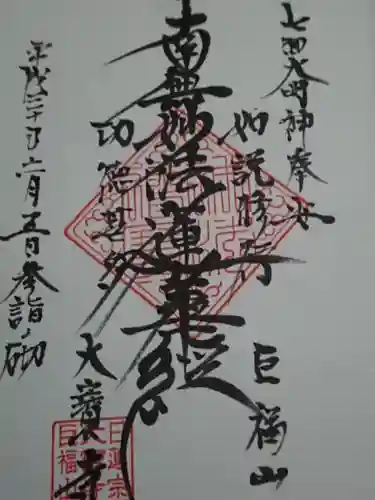 七面大明神奉安
如説修行
巨福山
南無妙法蓮華経
功徳甚多
大寶寺
平成三十年六月五日参詣ノ砌
日蓮宗
巨福山